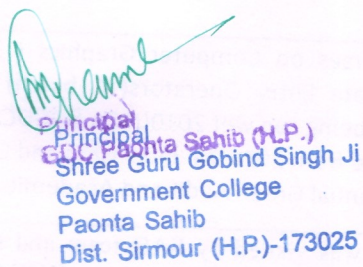 Principal
GDC Paonta Sahib (H.P.)
Principal
Shree Guru Gobind Singh Ji
Government College
Paonta Sahib
Dist. Sirmour (H.P.)-173025